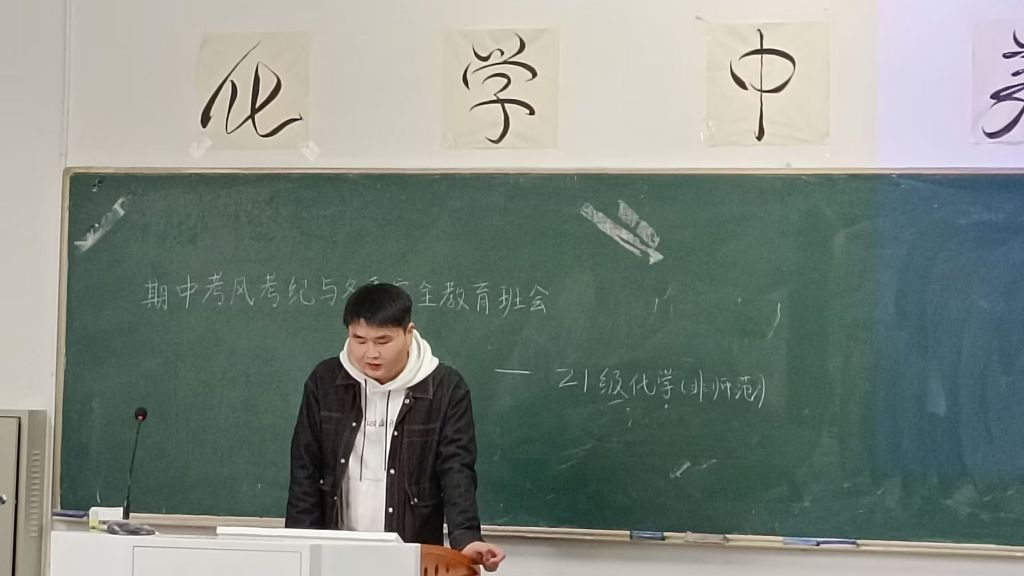 化 学 中
期中考风考纪与冬季安全教育班会
— 21级化学(非师范)
just do it